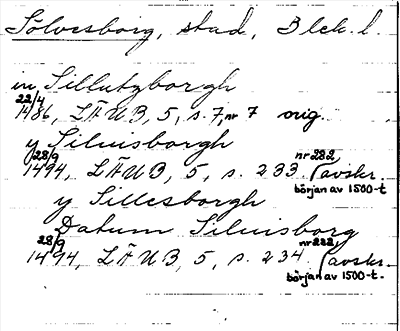 Sölvesborg, stad, Blek. l.
in Sillutzborgh
22/4 1486, LÄUB, 5, s. 7, nr 7 orig.
y Siluisborgh
28/9 1494, LÄUB, 5, s. 233 nr 232 (avskr. början av 1500-t
y Sillesborgh
Datum Siluisborg
28/9 1494, LÄUB, 5, s. 234. nr 232, (avskr. början av 1500-t.